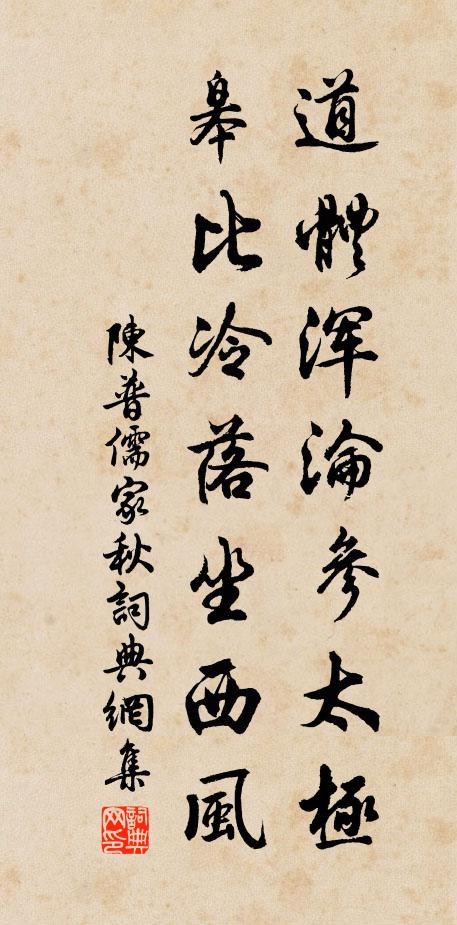 道體浑淪參太極
皋比冷落坐西風
陳普儒家秋詞典網集
詞典网印